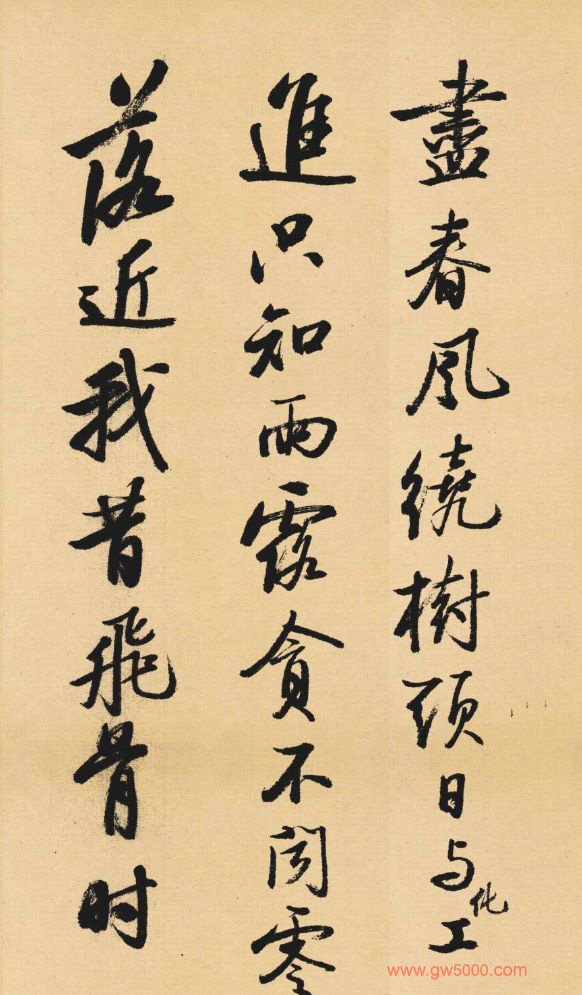 盡春風繞樹頭日与化工
進只知雨露貪不聞零
落近我昔飛骨时
www.gw5000.com